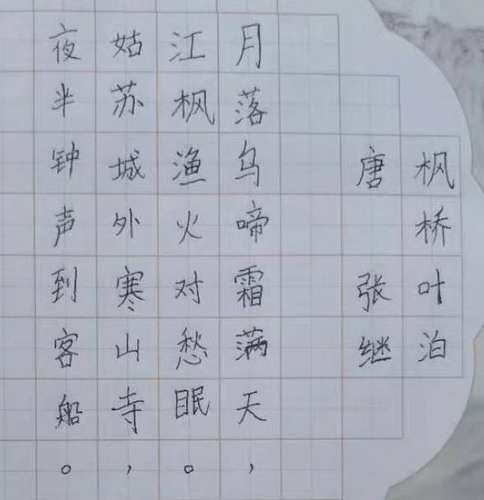 枫桥叶泊
唐 张继
月落乌啼霜满天，
江枫渔火对愁眠。
姑苏城外寒山寺，
夜半钟声到客船。